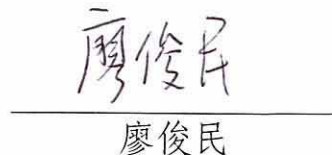 廖俊民
廖俊民